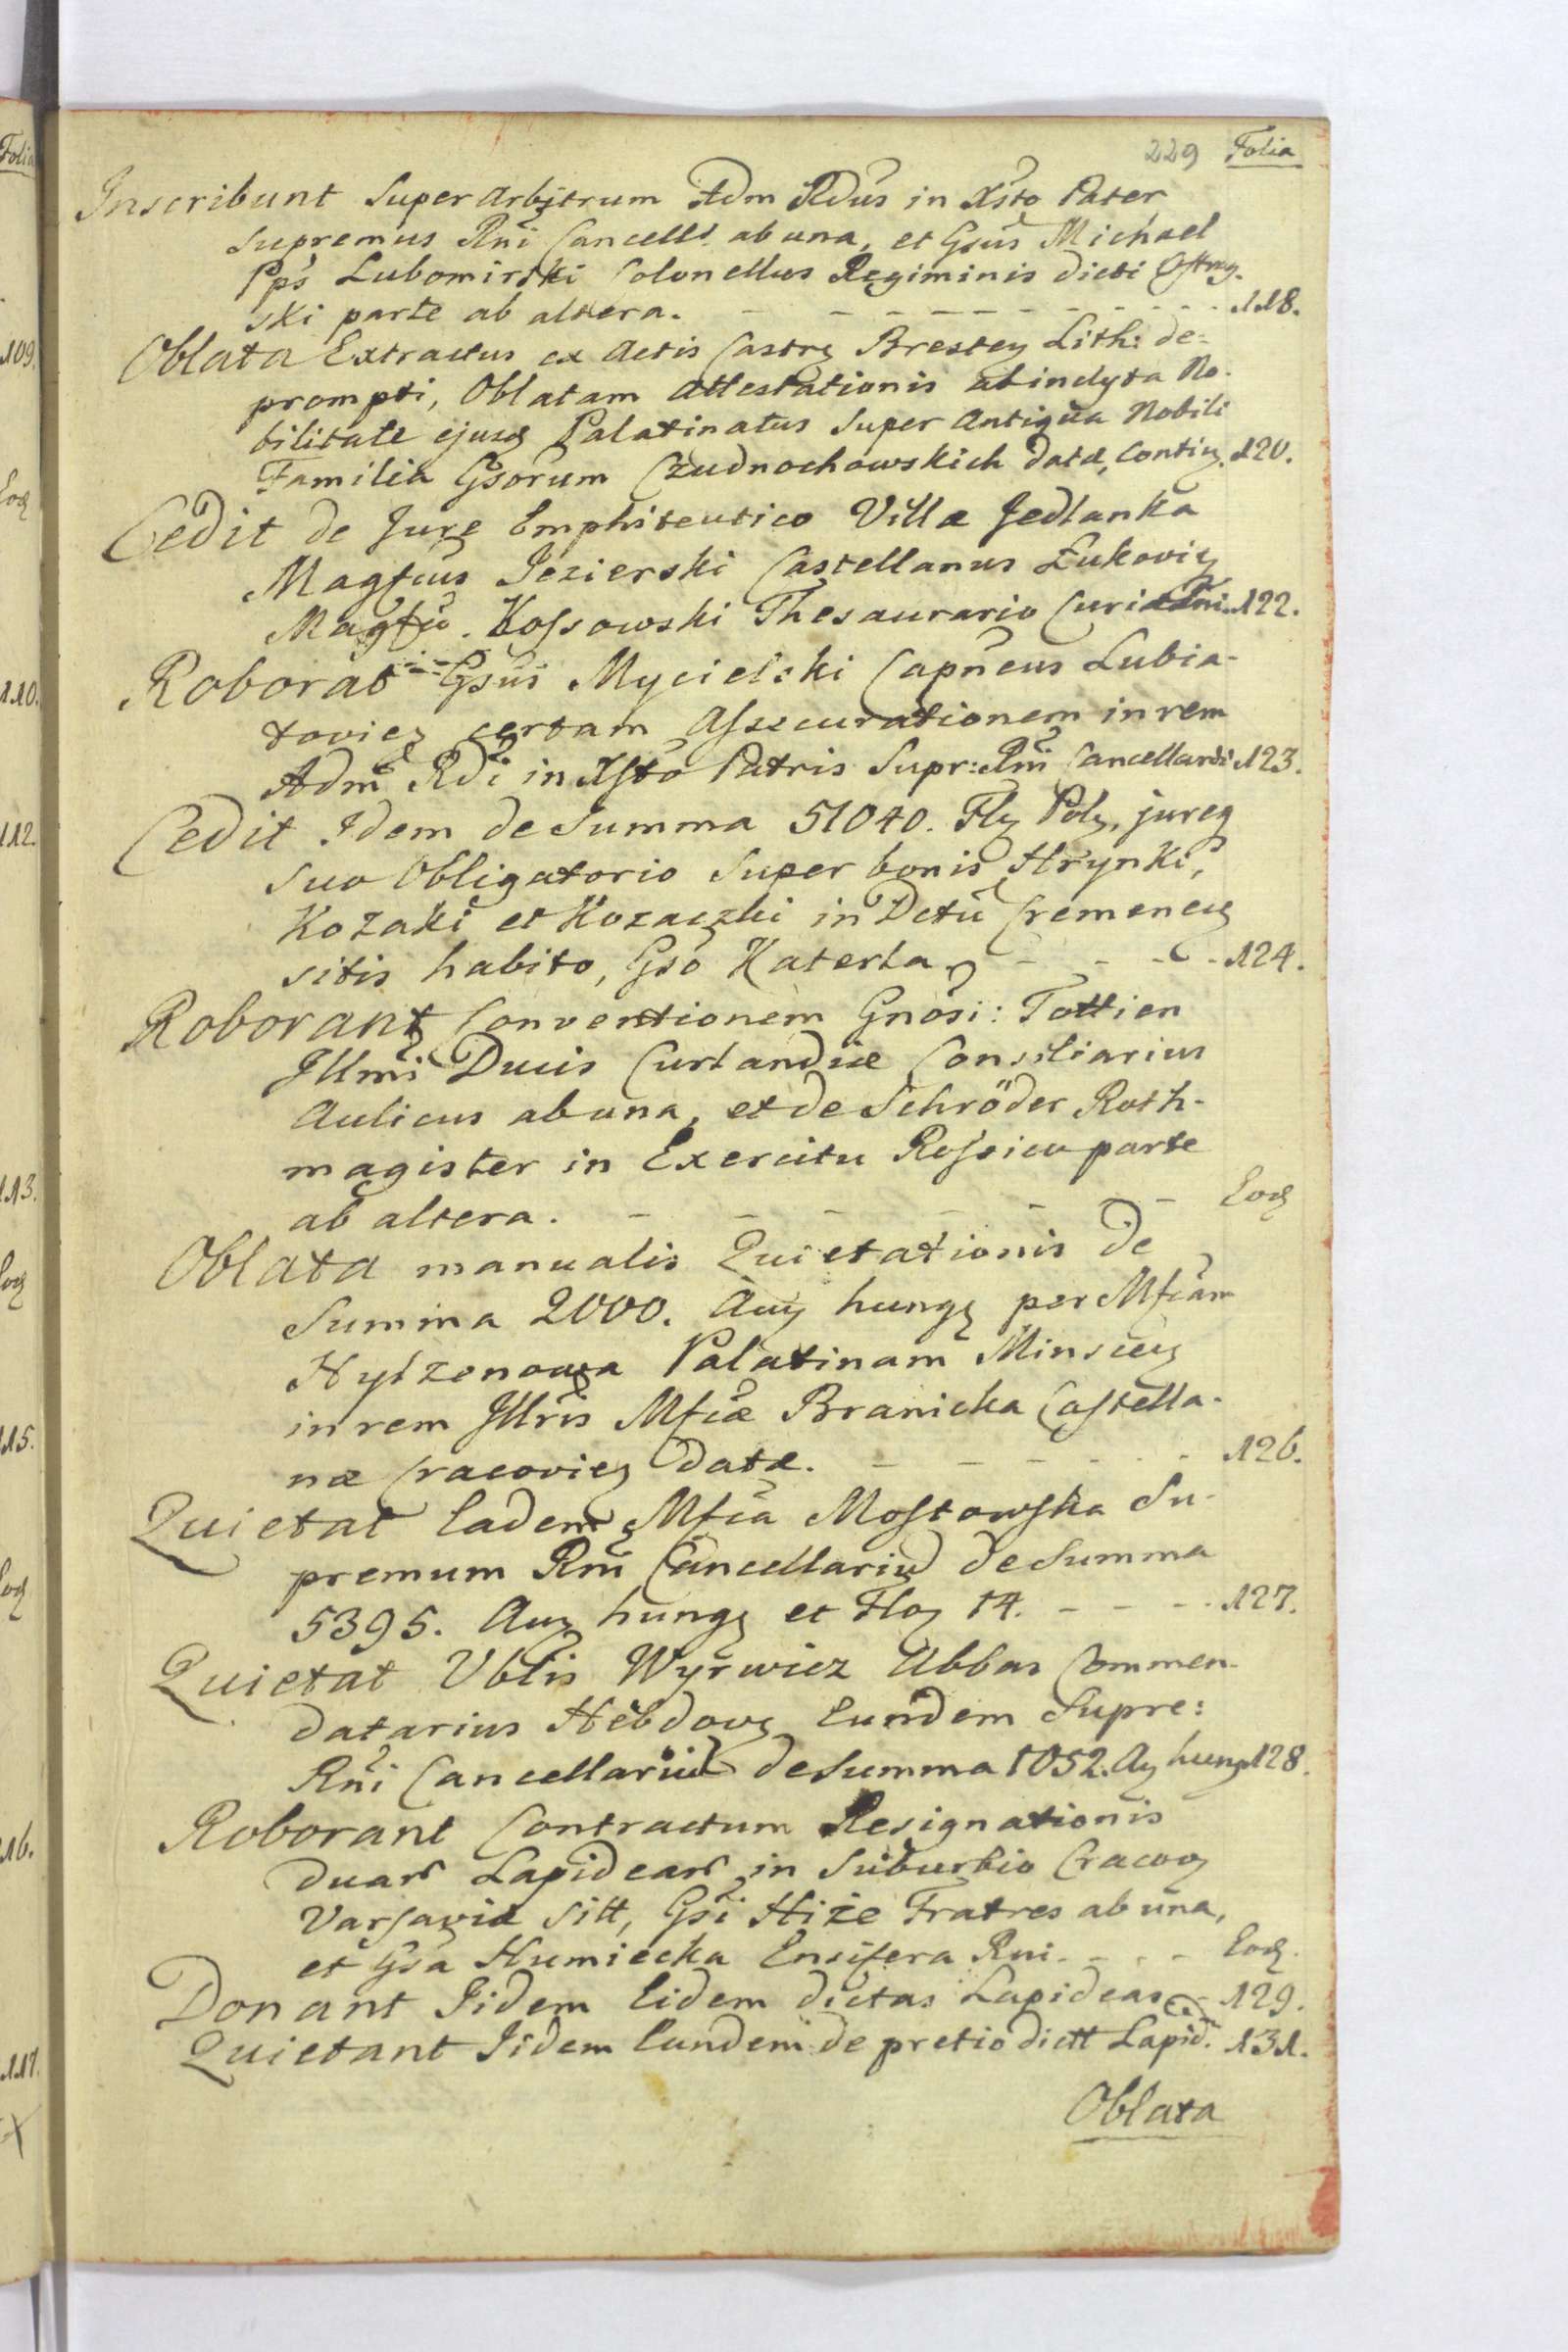 229 Folia
Inscribunt Super Arbitrum Adm Rdus in Xsto Pater
Supremus Rni Cancells ab una, et Gsus Michael
Pps Lubomirski Colonellus Regiminis dicti Ostrog-
ski parte ab altera. - - - - - - - 118.
Oblata Extractus ex Actis Castrę Brestey Lith: de=
prompti, Oblatam Attestationis ab inclyta No-
bilitate ejusq Palatinatus Super Antiqua Nobili
Familia Gsorum Czudnochowskich datæ, Contiņ. 120.
Cedit de Jure Emphiteutico Villæ Jedlanka
Magfcus Jezierski Castellanus Łukoviȩ
Magfco. Kossowski Thesaurario Curiæ Rni 122.
Roborat Gsus Mycielski Capneus Lubia-
toviez certam Assecurationem in rem
Adm Rdi in Xsto Patris Supr: Rni Cancellarii 123.
Cedit Idem de Summa 51040. Flȩ Polȩ, jureq
suo Obligatorio Super bonis Hrynki,
Kozaki et Kozaczki in Dctu Cremeneȩ
sitis habito, Gso Katerla - - - - 124.
Roborant Conventionem Gnosi: Tottien
Illmi Ducis Curlandiæ Consiliarius
Aulicus ab una, et de Schröder Roth-
magister in Exercitu Rossico parte
ab altera. - - - - - - Eod
Oblata manualis Quietationis de
Summa 2000. Auȩ hungȩ per Mfcam
Hylzenowa Palatinam Minsceȩ
in rem Illris Mfcæ Branicka Castella-
næ Cracovieȩ datæ. - - - - - 126.
Quietat Eadem Mfca Mostowska Su-
premum Rni Cancellariuȩ de Summa
5395. Auȩ hungȩ et Floȩ 14. - - - - 127.
Quietat Vblis Wyrwicz Abbas Commen-
datarius Hebdovȩ Eundem Supre:
Rni Cancellariu de Summa 1052. Aȩ hung. 128.
Roborant Contractum Resignationis
duars Lapidears in Suburbio Cracoȩ
Varsaviæ Sitt, Gsi Hiże Fratres ab una,
et Gsa Humiecka Ensifera Rni. - - - Eod.
Donant Iidem Eidem dictas Lapideas - 129.
Quietant Iidem Eundem de pretio dictt Lapid. 131.
Oblata